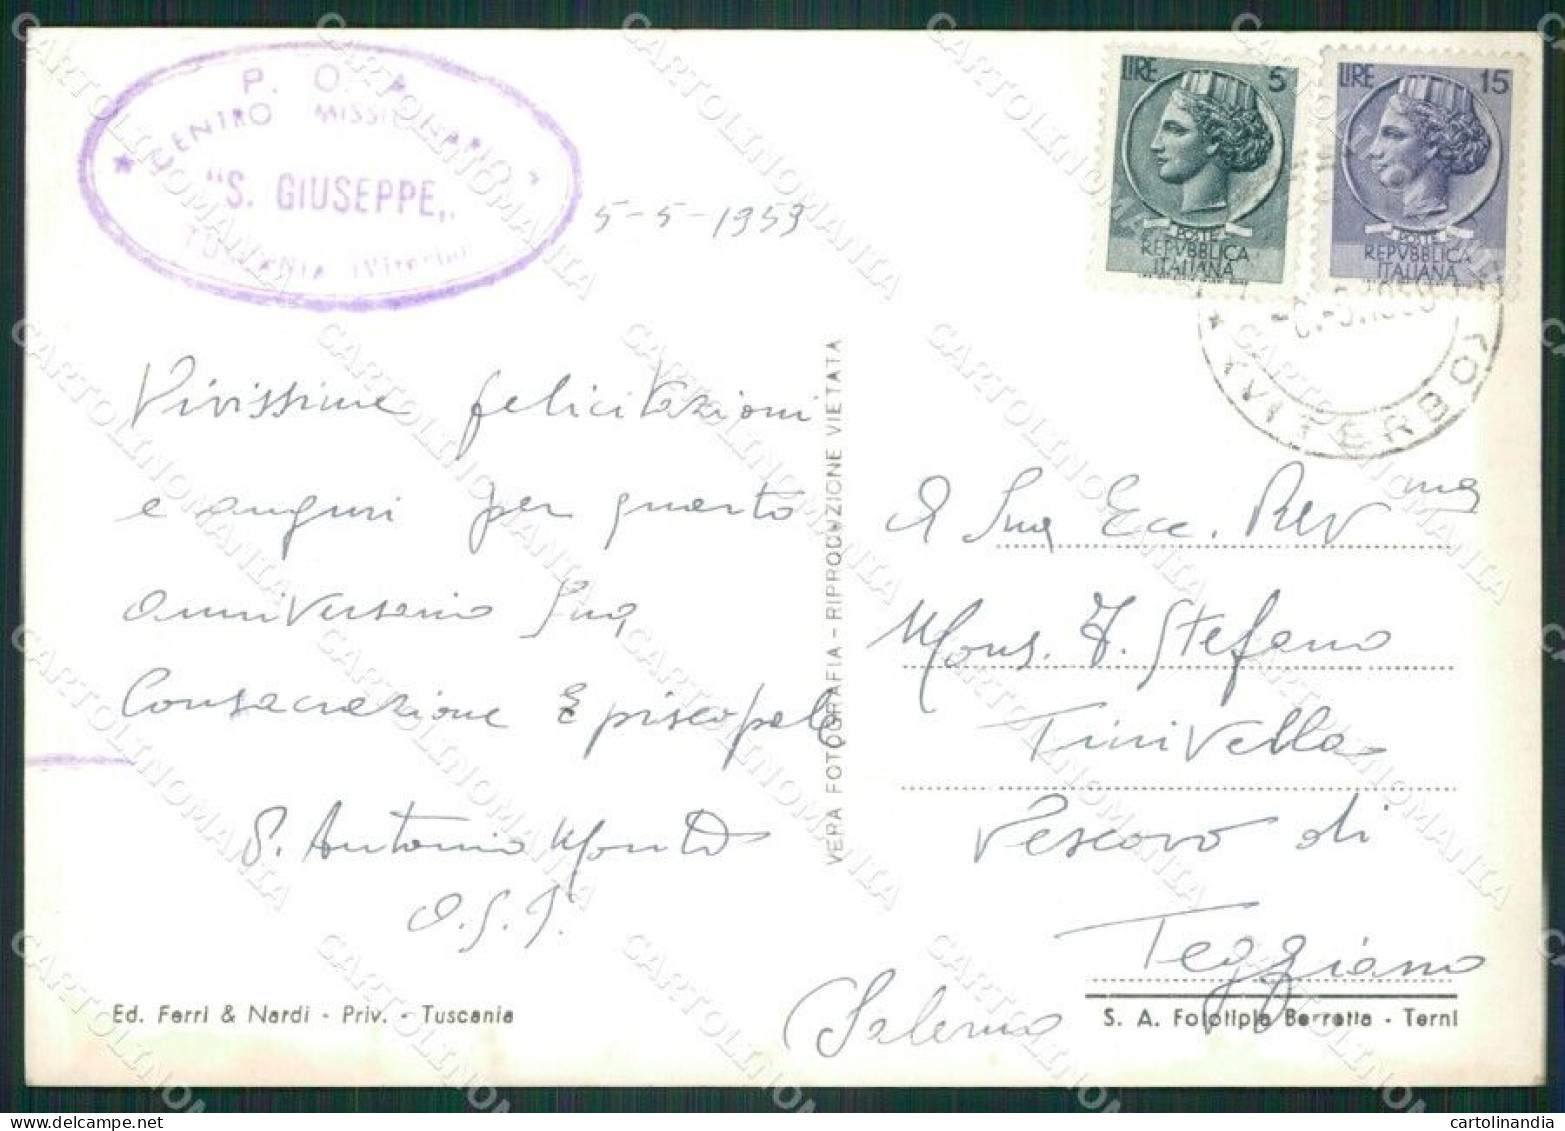 P. O. A.
CENTRO MISSIONARIO
"S. GIUSEPPE„
TUSCANIA (Viterbo)
5-5-1959
LIRE 5
POSTE
REPVBBLICA
ITALIANA
LIRE 15
POSTE
REPVBBLICA
ITALIANA
(VITERBO)
Vivissime felicitazioni
e auguri per quarto
anniversario Sua
Consacrazione Episcopale
P. Antonio
O.S.J.
VERA FOTOGRAFIA - RIPRODUZIONE VIETATA
A Sua Ecc. Rev ma
Mons. F. Stefano
Tinivella
Vescovo di
Teggiano
Salerno
Ed. Ferri & Nardi - Priv. - Tuscania
S. A. Fototipia Berretta - Terni
CARTOLINOMANIA
cartolinandia